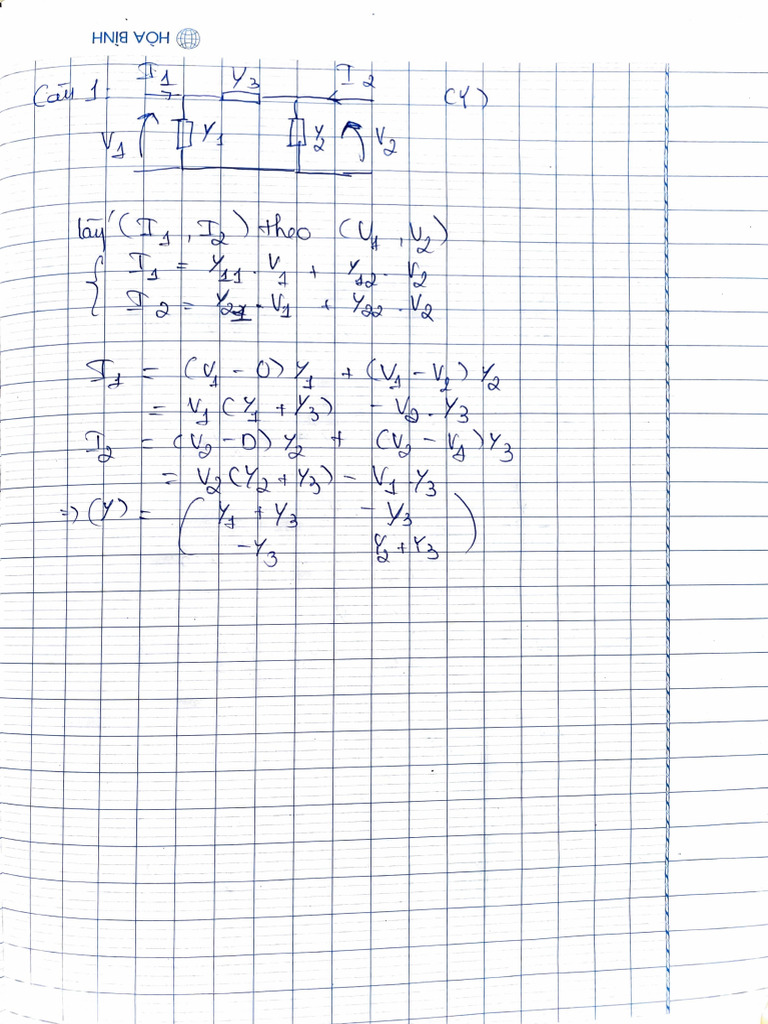 HÒA BÌNH
Câu 1: I1 Y3 I2 (Y)
V1 Y1 Y2 V2
Lấy (I1, I2) theo (V1, V2)
I1 = Y11 . V1 + Y12 . V2
I2 = Y21 . V1 + Y22 . V2
I1 = (V1 - 0) Y1 + (V1 - V2) Y2
= V1 (Y1 + Y3) - V2 . Y3
I2 = (V2 - 0) Y2 + (V2 - V1) Y3
= V2 (Y2 + Y3) - V1 . Y3
=> (Y) = ( Y1 + Y3 - Y3
- Y3 Y2 + Y3 )